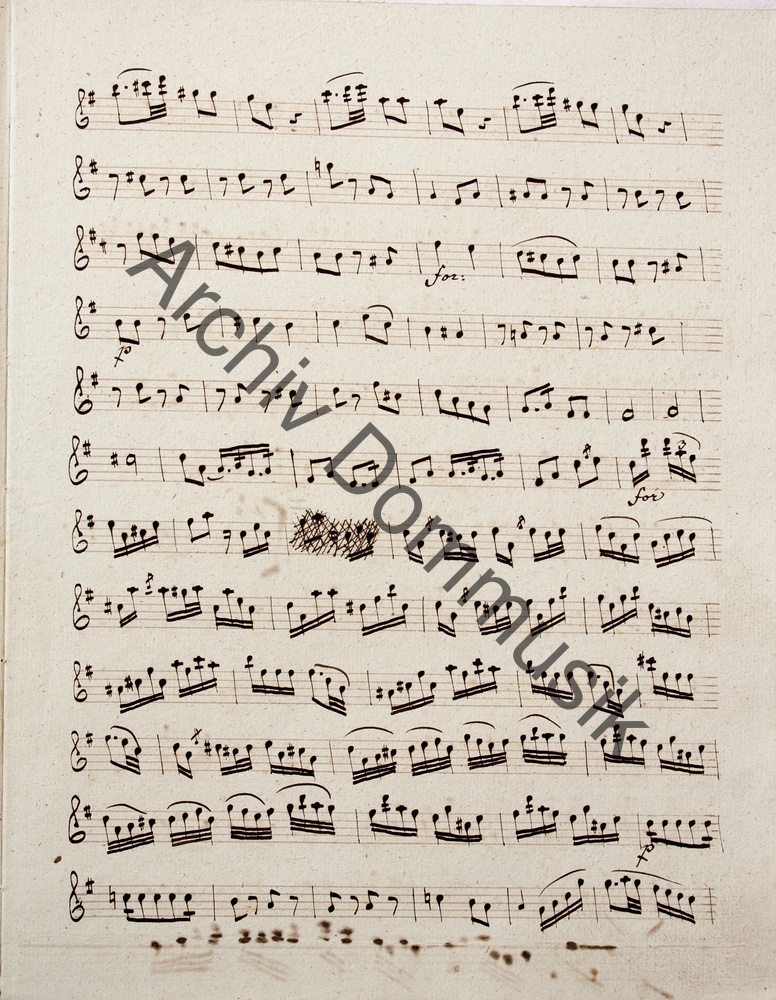 for:
p
for
3
p
Archiv Dommusik